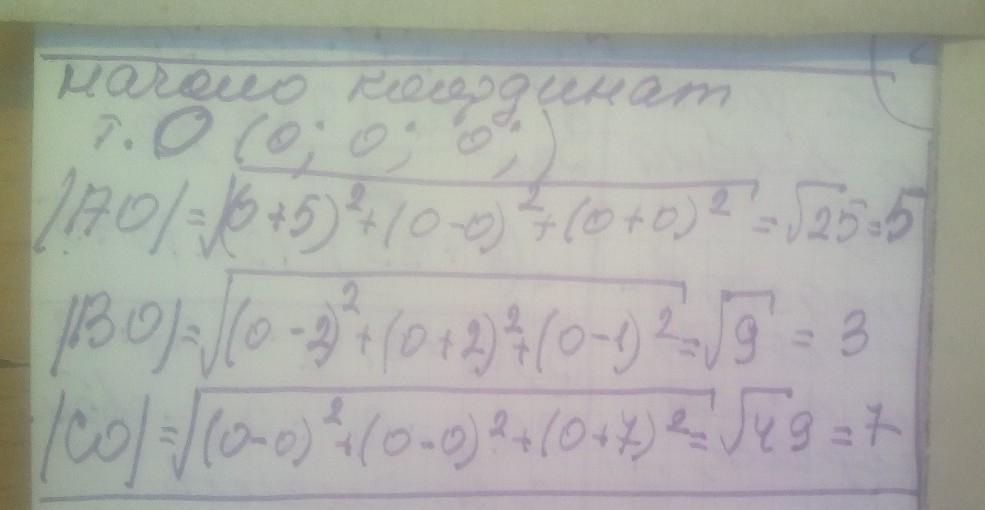 начало координат
т. O (0; 0; 0;)
|AO| = √(0+5)² + (0-0)² + (0+0)² = √25 = 5
|BO| = √(0-2)² + (0+2)² + (0-1)² = √9 = 3
|CO| = √(0-0)² + (0-0)² + (0+7)² = √49 = 7